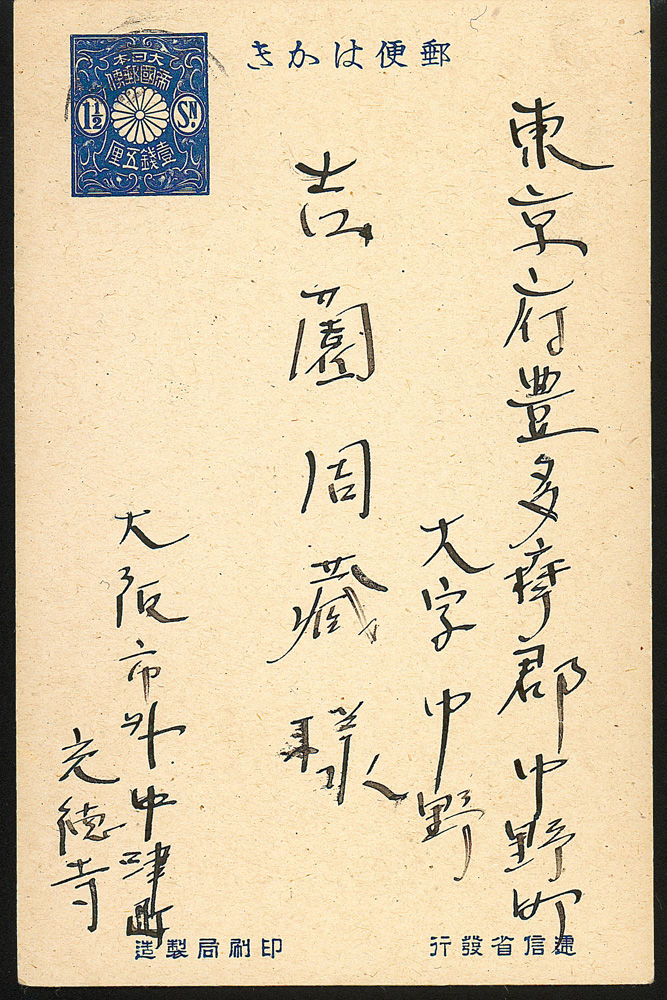 郵便はかき
大日本
帝國郵便
1½ SN.
壹錢五厘
東京府豊多摩郡中野町
大字中野
吉薗周蔵様
大阪市外中津町
充徳寺
遞信省發行
印刷局製造